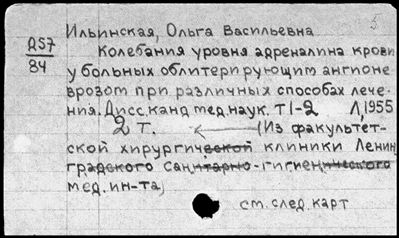 Ильинская, Ольга Васильевна 5
Д57
84
Колебания уровня адреналина крови
у больных облитерирующим ангионе
врозом при различных способах лече-
ния. Дисс. канд мед. наук. Т 1-2 Л, 1955
2 т. (Из факультет-
ской хирургической клиники Ленин
градского санитарно-гигиенического
мед. ин-та)
см. след. карт